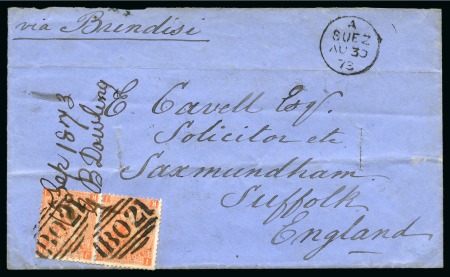 via Brindisi
A
SUEZ
AU 30
73
Sep 1873
B Dowling
E Cavell Esqr.
Solicitor etc
Saxmundham
Suffolk
England
B02
B02